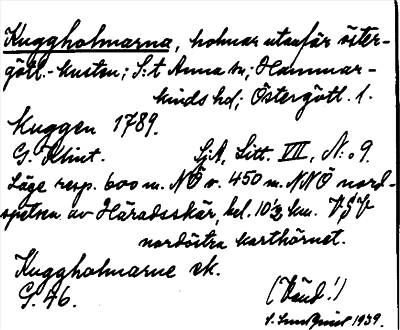 Kuggholmarna, holmar utanför öster-
götl.-kusten; S:t Anna sn; Hammar-
kinds hd; Östergötl. l.
Kuggen 1789.
G. Klint. Sj.A, Litt. VII, N:o 9.
Läge resp. 600 m. NÖ o. 450 m. NNÖ nord-
spetsen av Häradsskär, bel. 10 1/2 km. VSV
nordöstra karthörnet.
Kuggholmarne ek.
G. 46. (Vänd!)
S. Lundquist 1939.